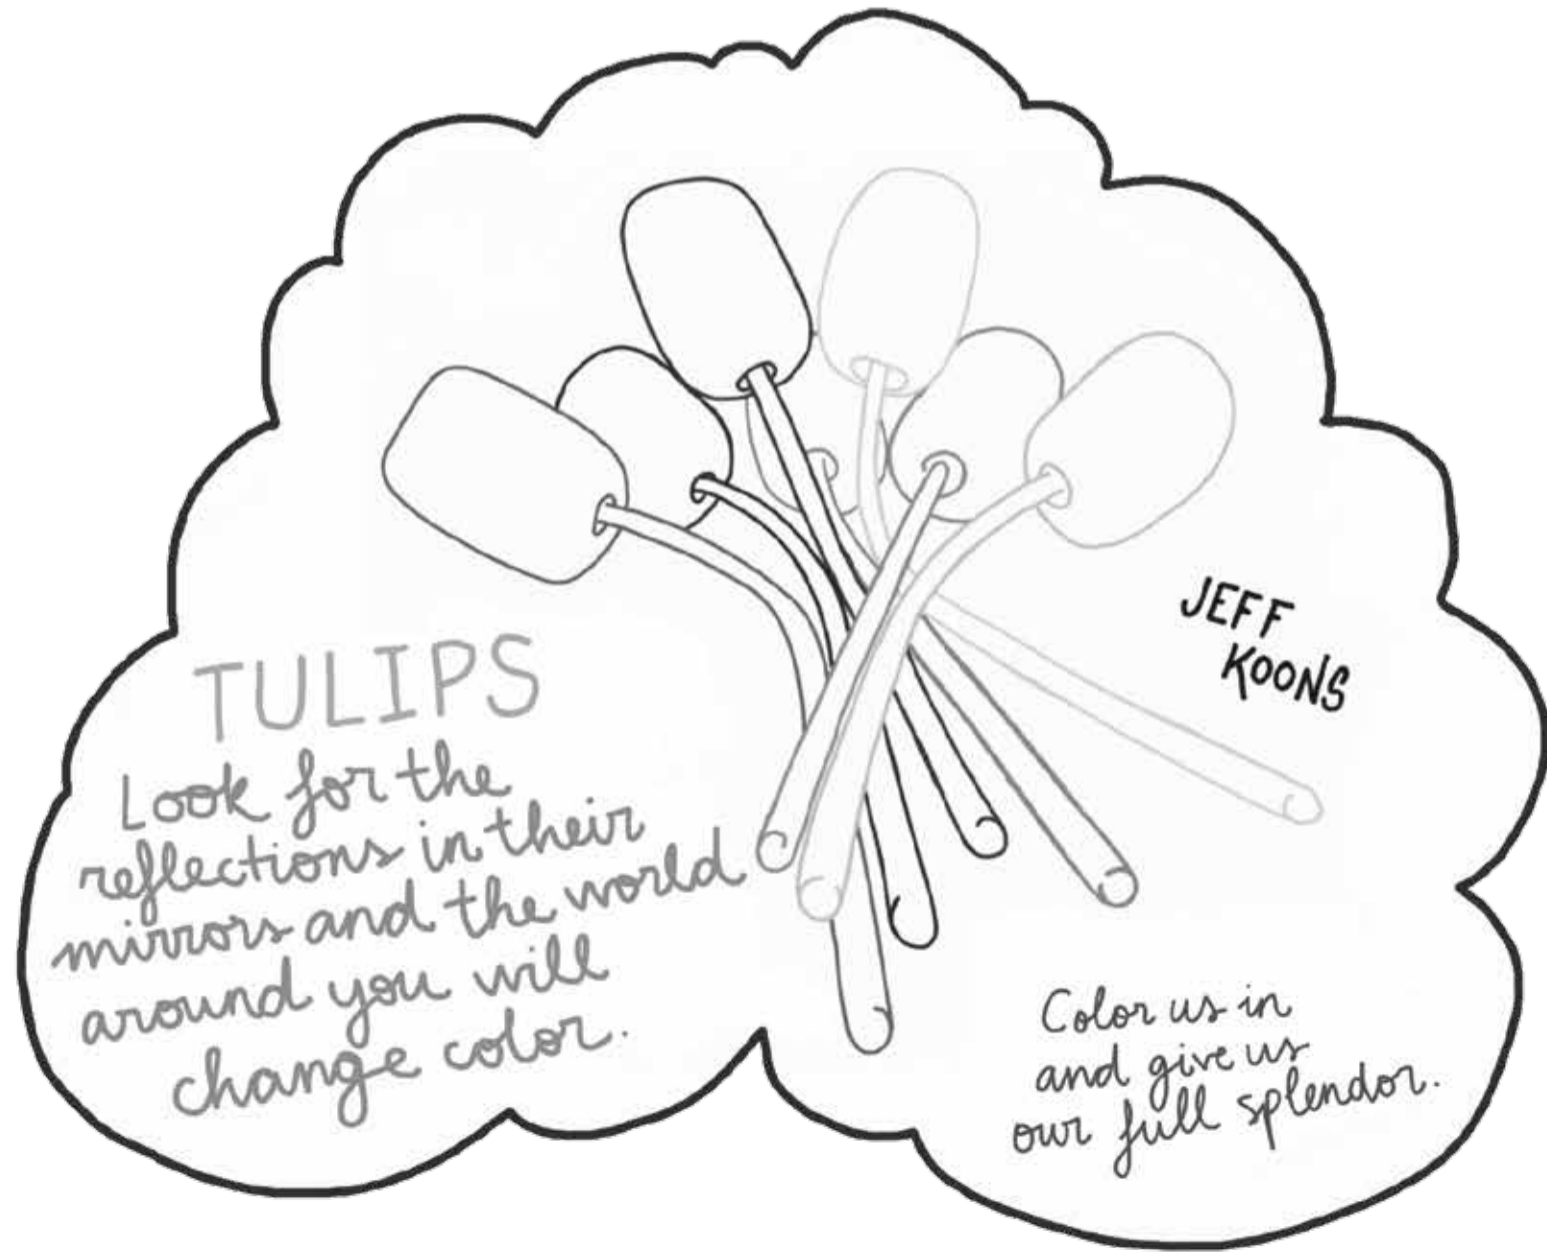 JEFF
KOONS
TULIPS
Look for the
reflections in their
mirrors and the world
around you will
change color.
Color us in
and give us
our full splendor.